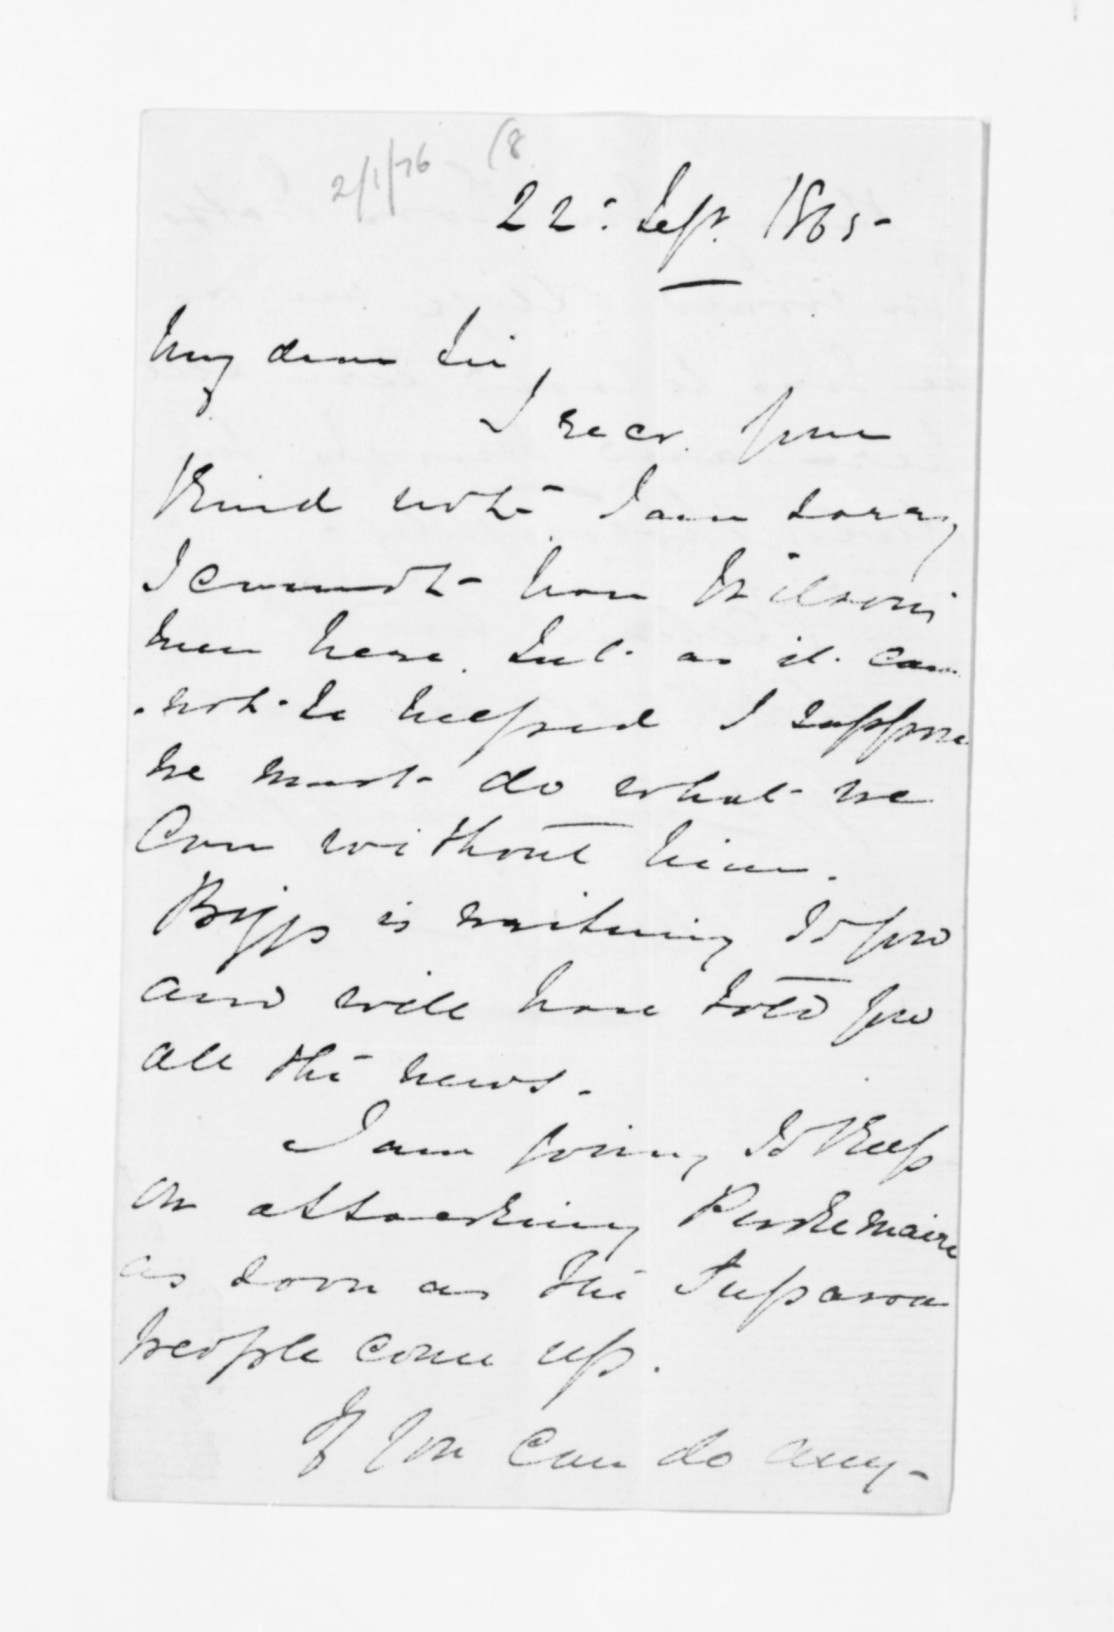 2/1/76 (8
22: Sept. 1865-
My dear Sir,
I recr. your
Kind note I am sorry
I cannot have Wilson's
men here. but as it can
not be helped I suppose
we must do what we
Can without him.
Biggs is writing to you
and will have told you
all the news.
I am going to keep
on attacking Pukemaire
as soon as the Tuparoa
people come up.
If you can do any-